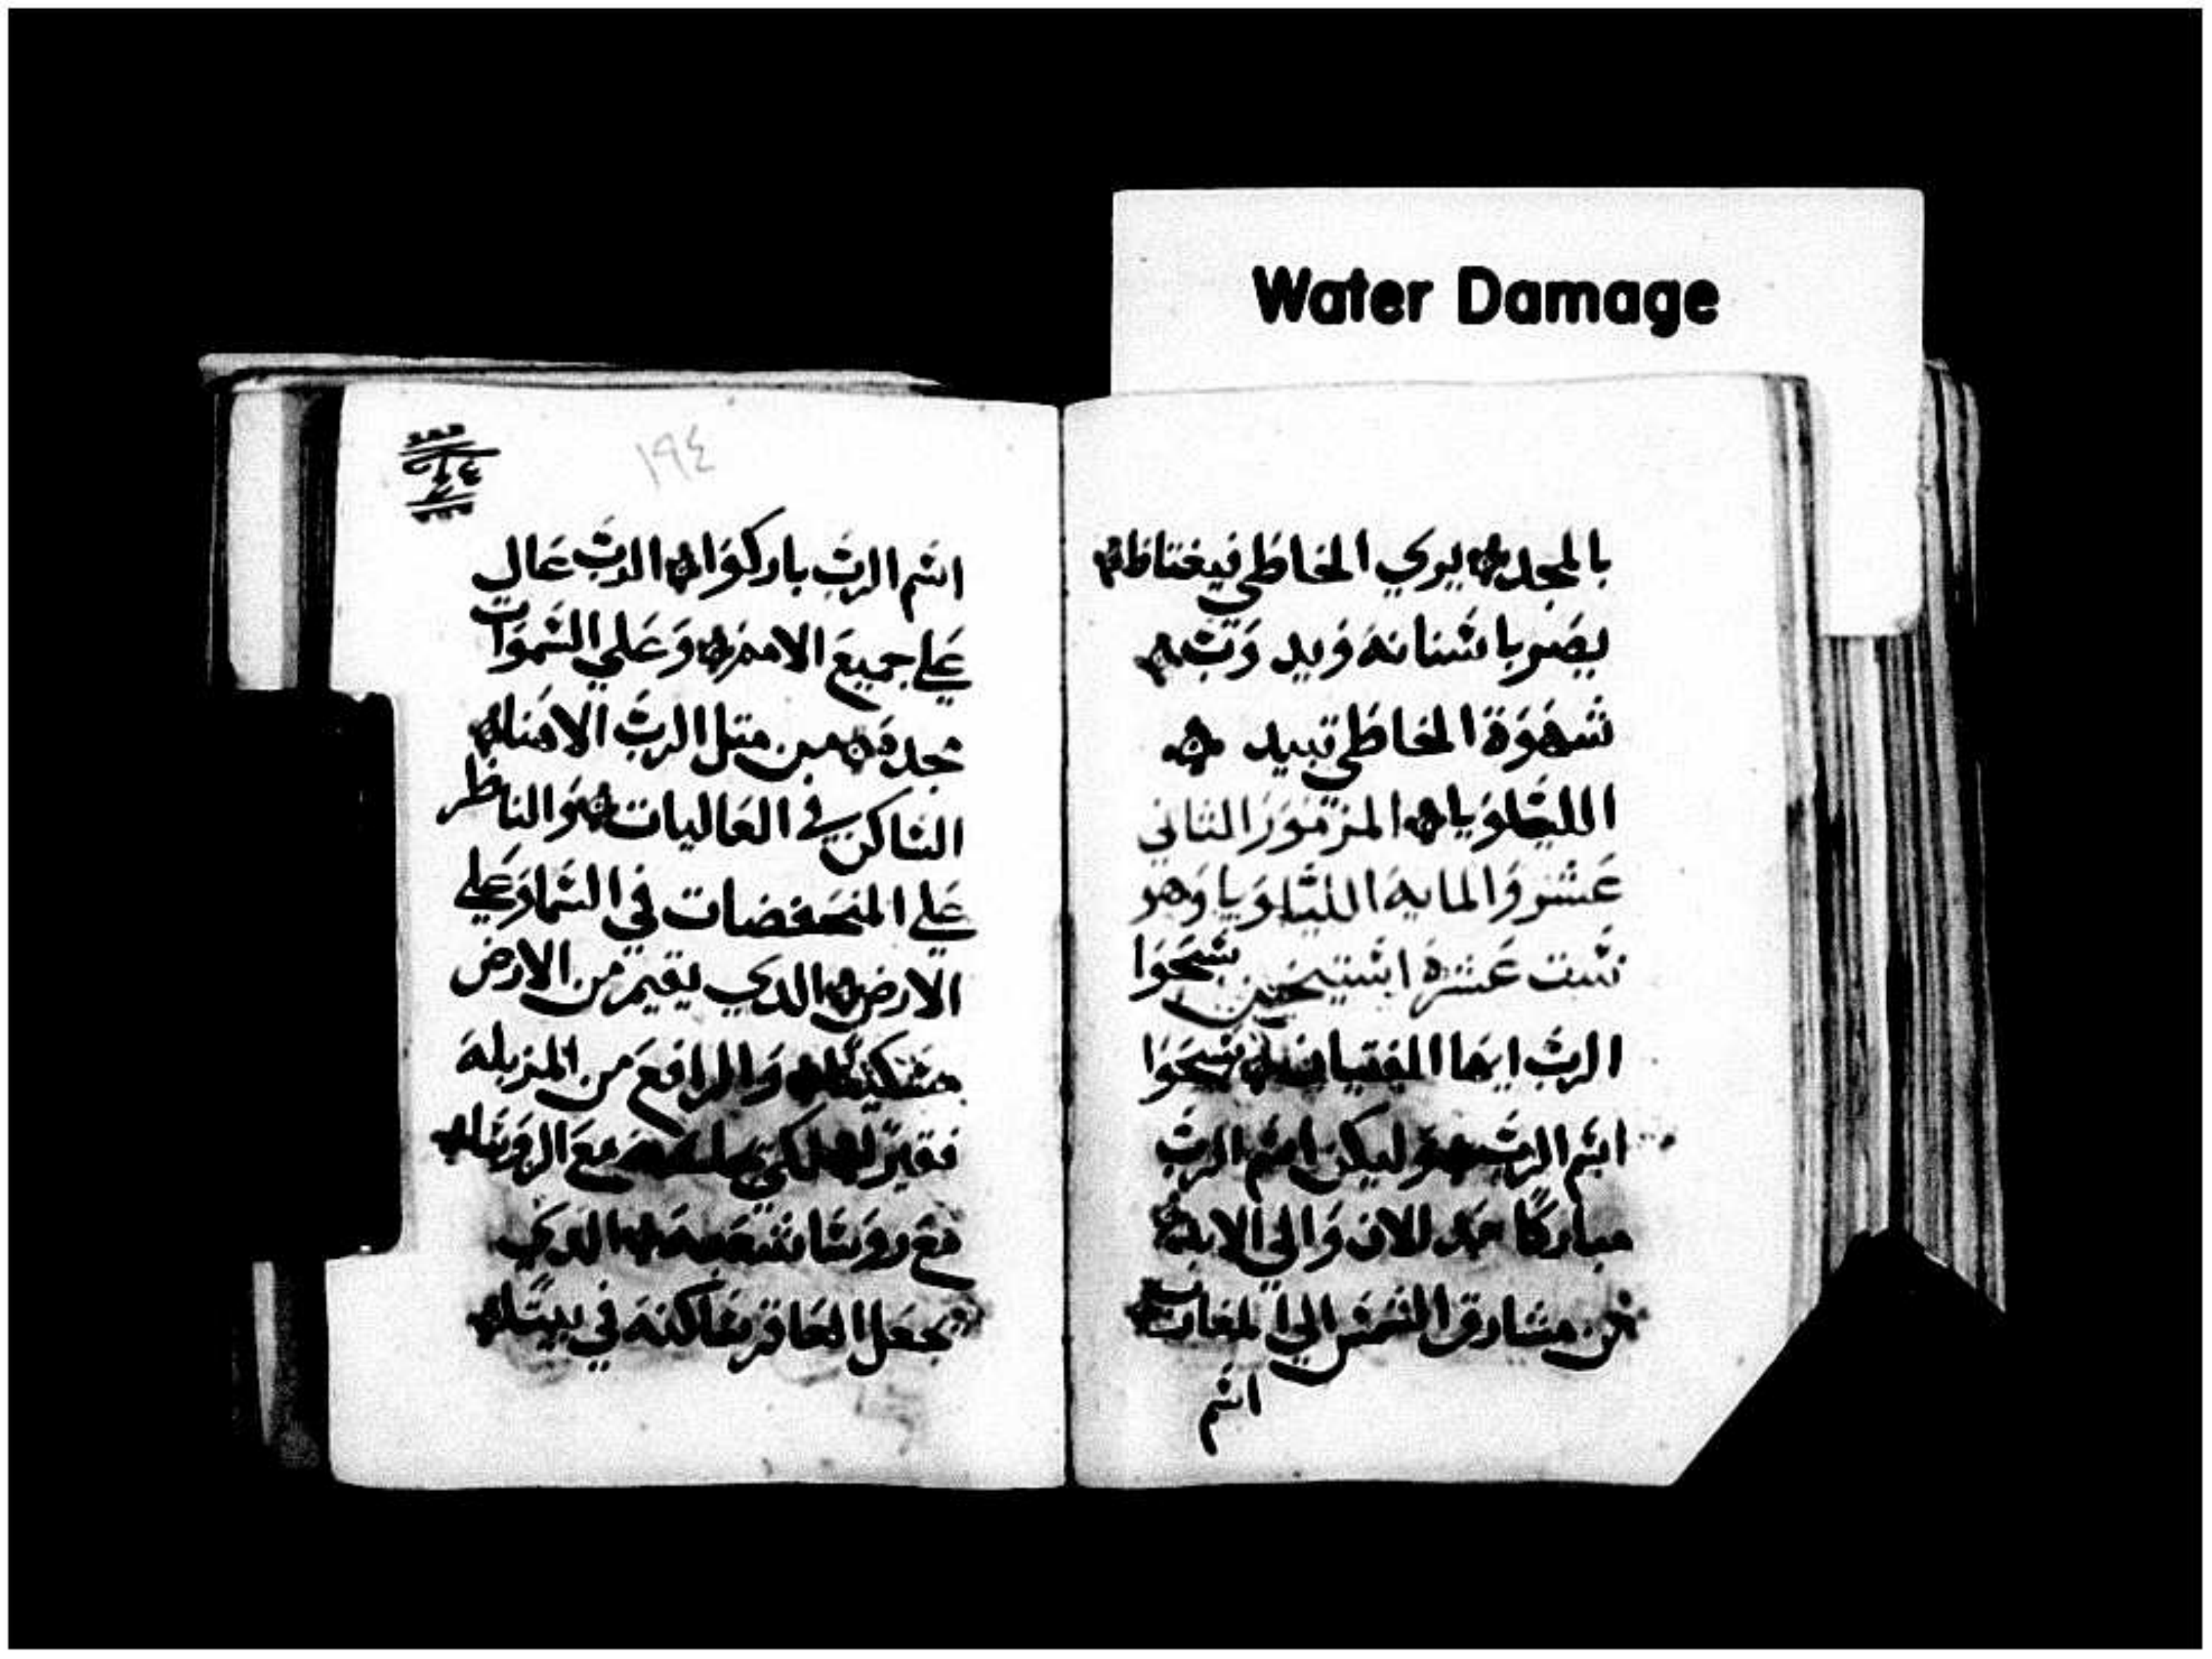 Water Damage
بالمجد يري الخاطي فيغتاظ
يصر باسنانه ويدوب
شهوة الخاطي تبيد
الليلويا المزمور التاني
عشر والمايه الليلويا وهو
ست عشرة استيخن سبحوا
الرب ايها الفتيان سبحوا
اسم الرب وليكن اسم الرب
مباركا من الان والي الابد
من مشارق الشمس الي المغارب
اسم
١٩٤
اسم الرب باركوا الرب عال
علي جميع الامم وعلي السموات
مجده من متل الرب الاهنا
الساكن في العاليات والناظر
علي المنخفضات في السما وعلي
الارض الدي يقيم من الارض
مسكينا والرافع من المزبلة
فقيرا لكي يجلسه مع الروسا
مع روسا شعبه الدي
يجعل العاقر ساكنه في بيت